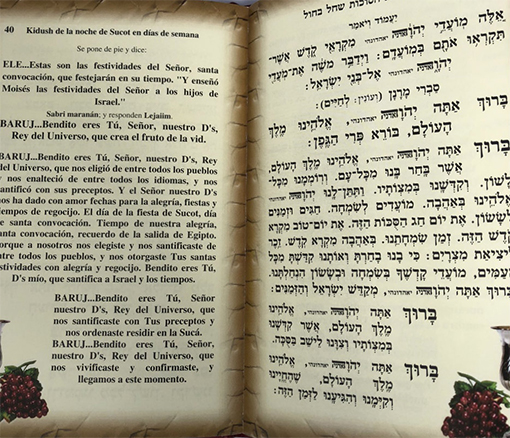 40 Kidush de la noche de Sucot en días de semana
Se pone de pie y dice:
ELE...Estas son las festividades del Señor, santa
convocación, que festejarán en su tiempo. "Y enseñó
Moisés las festividades del Señor a los hijos de
Israel."
Sabri maranán; y responden Lejaiim
BARUJ...Bendito eres Tú, Señor, nuestro D's,
Rey del Universo, que crea el fruto de la vid.
BARUJ...Bendito eres Tú, Señor, nuestro D's, Rey
del Universo, que nos eligió de entre todos los pueblos
y nos enalteció de entre todos los idiomas, y nos
santificó con sus preceptos. Y el Señor nuestro D's
nos ha dado con amor fechas para la alegría, fiestas y
tiempos de regocijo. El día de la fiesta de Sucot, día
de santa convocación. Tiempo de nuestra alegría,
santa convocación, recuerdo de la salida de Egipto.
Porque a nosotros nos elegiste y nos santificaste de
entre todos los pueblos, y nos otorgaste Tus santas
festividades con alegría y regocijo. Bendito eres Tú,
D's mío, que santifica a Israel y los tiempos.
BARUJ...Bendito eres Tú, Señor
nuestro D's, Rey del Universo, que
nos santificaste con Tus preceptos y
nos ordenaste residir en la Sucá.
BARUJ...Bendito eres Tú, Señor,
nuestro D's, Rey del Universo, que
nos vivificaste y confirmaste, y
llegamos a este momento.
הסוכות שחל בחול
יעמוד ויאמר
אֵלֶּה מוֹעֲדֵי יְהֹוָה יאהדונהי מִקְרָאֵי קֹדֶשׁ אֲשֶׁר
תִּקְרְאוּ אֹתָם בְּמוֹעֲדָם: וַיְדַבֵּר מֹשֶׁה אֶת־מֹעֲדֵי
יְהֹוָה יאהדונהי אֶל־בְּנֵי יִשְׂרָאֵל:
סַבְרִי מָרָנָן (ועונין: לְחַיִּים)
בָּרוּךְ אַתָּה יְהֹוָה יאהדונהי, אֱלֹהֵינוּ מֶלֶךְ
הָעוֹלָם, בּוֹרֵא פְּרִי הַגֶּפֶן:
בָּרוּךְ אַתָּה יְהֹוָה יאהדונהי, אֱלֹהֵינוּ מֶלֶךְ הָעוֹלָם,
אֲשֶׁר בָּחַר בָּנוּ מִכָּל־עָם. וְרוֹמְמָנוּ מִכָּל־
לָשׁוֹן. וְקִדְּשָׁנוּ בְּמִצְוֹתָיו. וַתִּתֶּן־לָנוּ יְהֹוָה יאהדונהי
אֱלֹהֵינוּ, בְּאַהֲבָה. מוֹעֲדִים לְשִׂמְחָה. חַגִּים וּזְמַנִּים
לְשָׂשׂוֹן. אֶת יוֹם חַג הַסֻּכּוֹת הַזֶּה. אֶת יוֹם־טוֹב מִקְרָא
קֹדֶשׁ הַזֶּה. זְמַן שִׂמְחָתֵנוּ. בְּאַהֲבָה מִקְרָא קֹדֶשׁ. זֵכֶר
לִיצִיאַת מִצְרָיִם: כִּי בָנוּ בָחַרְתָּ וְאוֹתָנוּ קִדַּשְׁתָּ מִכָּל
הָעַמִּים, מוֹעֲדֵי קָדְשֶׁךָ בְּשִׂמְחָה וּבְשָׂשׂוֹן הִנְחַלְתָּנוּ.
בָּרוּךְ אַתָּה יְהֹוָה יאהדונהי, מְקַדֵּשׁ יִשְׂרָאֵל וְהַזְּמַנִּים:
בָּרוּךְ אַתָּה יְהֹוָה יאהדונהי, אֱלֹהֵינוּ
מֶלֶךְ הָעוֹלָם, אֲשֶׁר קִדְּשָׁנוּ
בְּמִצְוֹתָיו וְצִוָּנוּ לֵישֵׁב בַּסֻּכָּה.
בָּרוּךְ אַתָּה יְהֹוָה יאהדונהי, אֱלֹהֵינוּ
מֶלֶךְ הָעוֹלָם, שֶׁהֶחֱיָנוּ
וְקִיְּמָנוּ וְהִגִּיעָנוּ לַזְּמַן הַזֶּה: